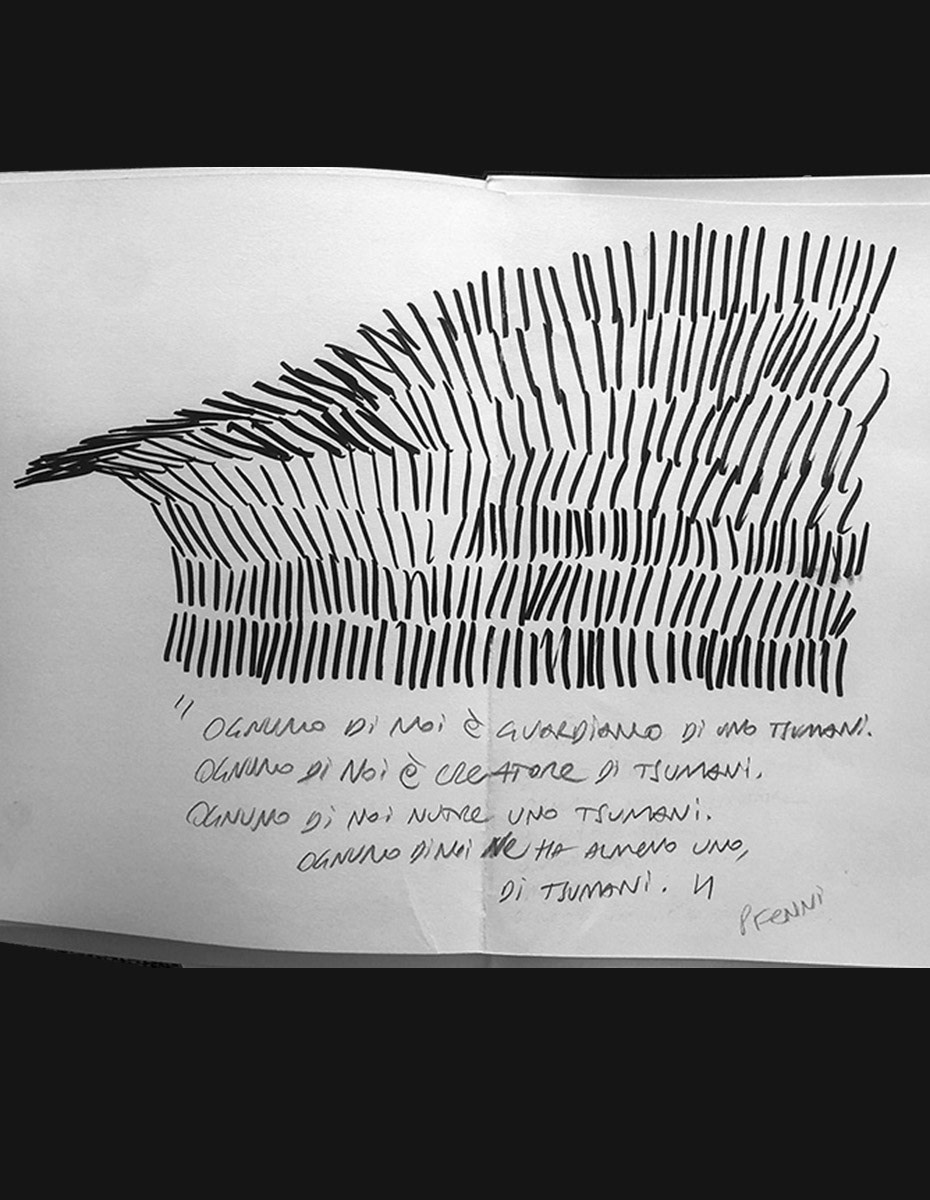 " OGNUNO DI NOI È GUARDIANO DI UNO TSUNAMI.
OGNUNO DI NOI È CREATORE DI TSUNAMI.
OGNUNO DI NOI NUTRE UNO TSUNAMI.
OGNUNO DI NOI NE HA ALMENO UNO,
DI TSUNAMI. "
PFENNI